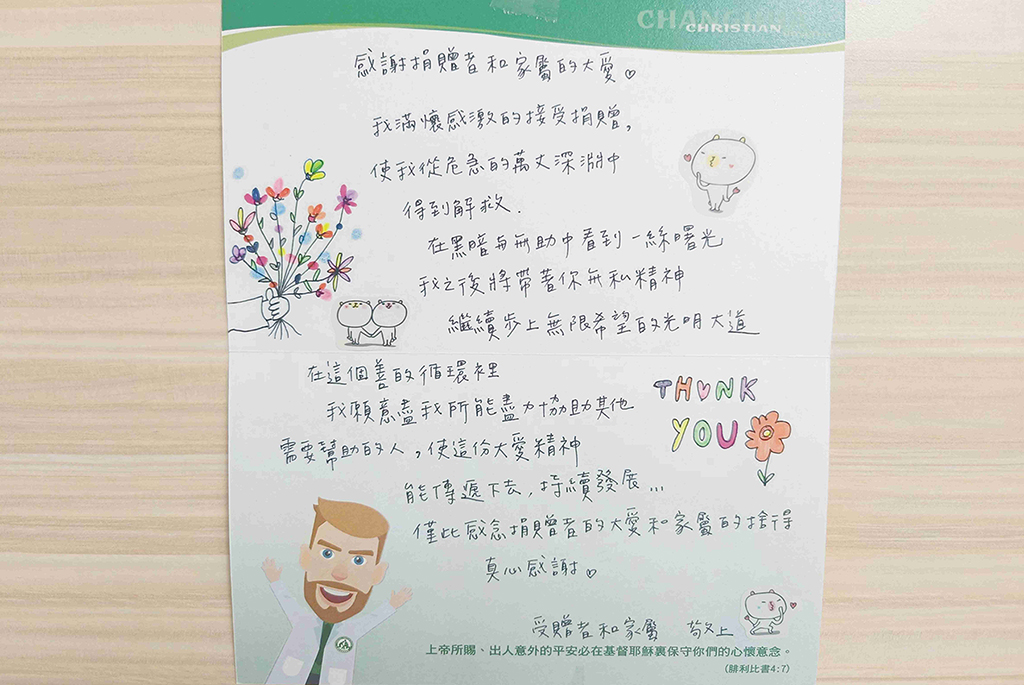 CHAN
CHRISTIAN
感謝捐贈者和家屬的大愛♡
我滿懷感激的接受捐贈,
使我從危急的萬丈深淵中
得到解救.
在黑暗與無助中看到一絲曙光
我之後將帶著你無私精神
繼續步上無限希望的光明大道
在這個善的循環裡
我願意盡我所能盡力協助其他
需要幫助的人,使這份大愛精神
能傳遞下去,持續發展...
僅此感念捐贈者的大愛和家屬的捨得
真心感謝♡
THANK
YOU
受贈者和家屬 敬上
上帝所賜、出人意外的平安必在基督耶穌裏保守你們的心懷意念。
(腓利比書4:7)